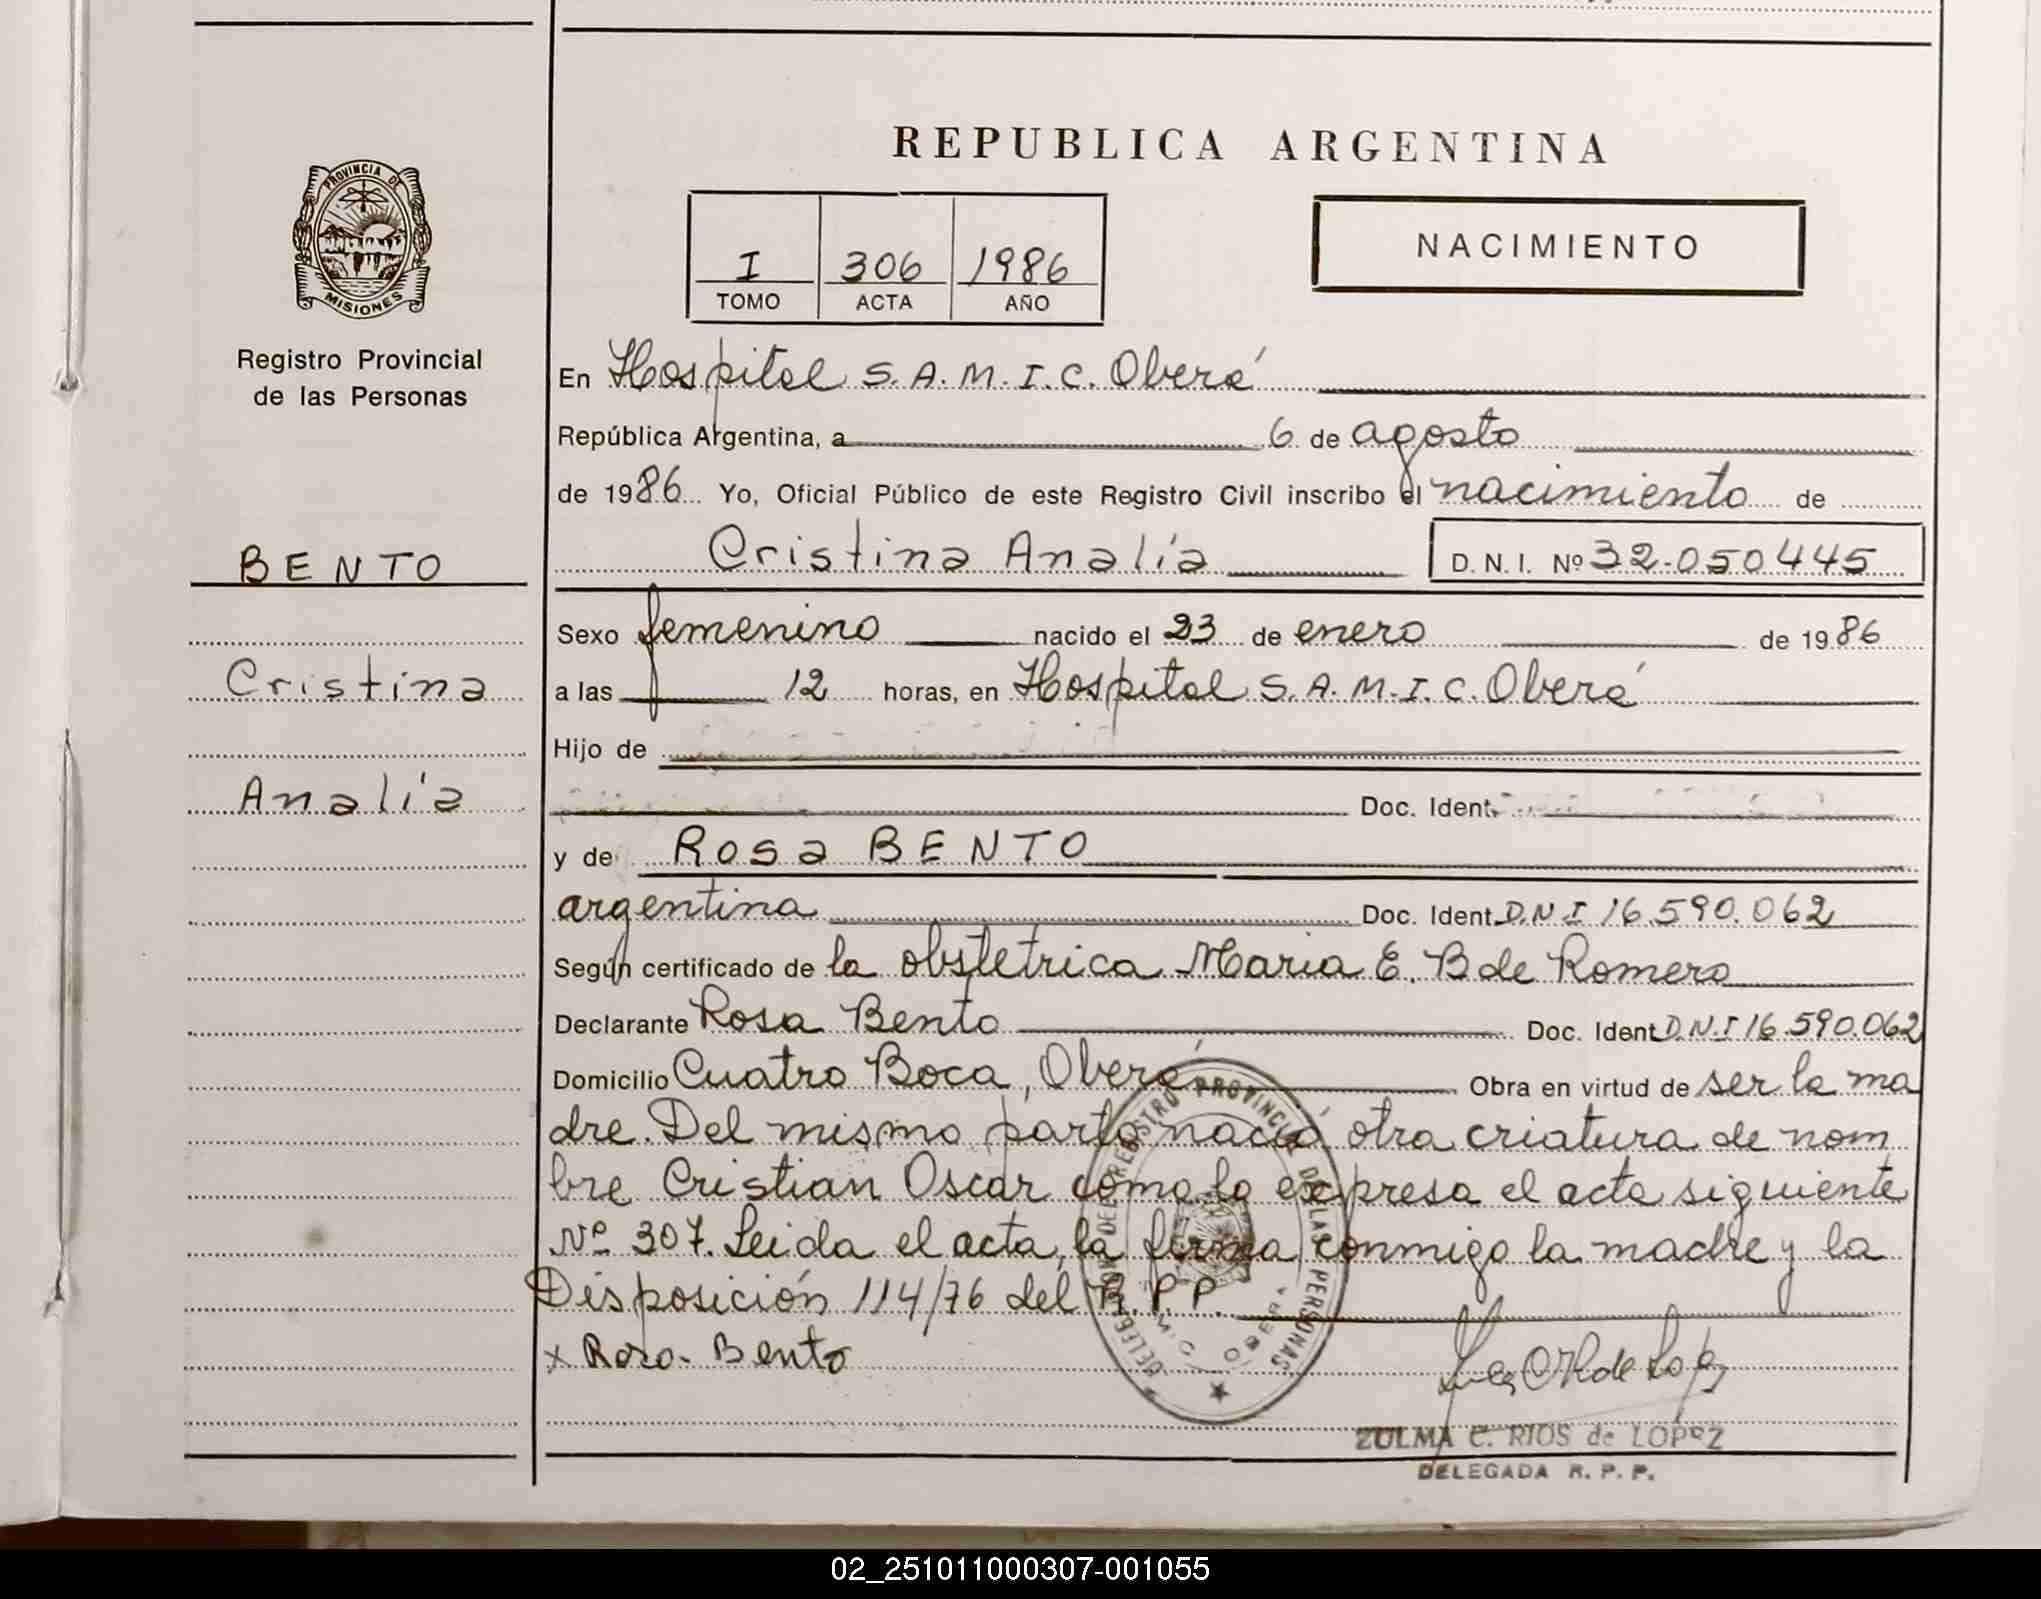 REPUBLICA ARGENTINA
PROVINCIA DE
MISIONES
Registro Provincial
de las Personas
I 306 1986
TOMO ACTA AÑO
NACIMIENTO
En Hospital S.A.M.I.C. Oberá
República Argentina, a 6 de agosto
de 1986 Yo, Oficial Público de este Registro Civil inscribo el nacimiento de
BENTO
Cristina Analía D.N.I. Nº 32.050445
Sexo femenino nacido el 23 de enero de 1986
Cristina
a las 12 horas, en Hospital S.A.M.I.C. Oberá
Hijo de
Analía
Doc. Ident.
y de Rosa BENTO
argentina Doc. Ident. D.N.I 16.590.062
Según certificado de la obstetrica Maria E. B de Romero
Declarante Rosa Bento Doc. Ident. D.N.I 16.590.062
Domicilio Cuatro Boca, Oberá Obra en virtud de ser la ma
dre. Del mismo parto nació otra criatura de nom
bre Cristian Oscar como lo expresa el acta siguiente
Nº 307. Leida el acta, la firma conmigo la madre y la
Disposición 114/76 del R.P.P.
x Rosa Bento
REGISTRO PROVINCIAL DE LAS PERSONAS
OBERA
ZULMA C. RIOS de LOPEZ
DELEGADA R. P. P.
02_251011000307-001055